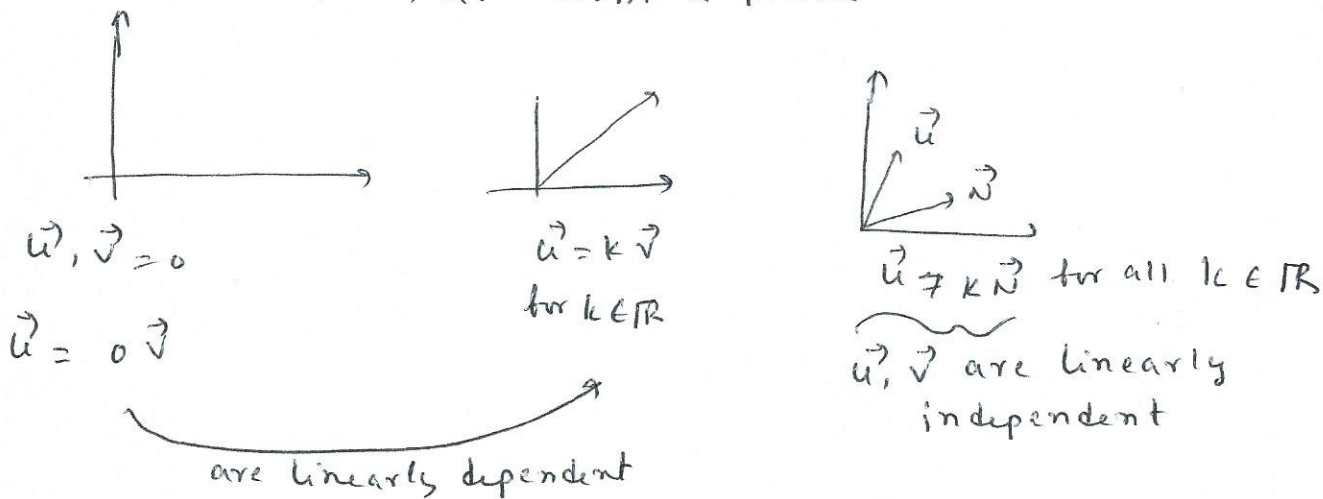 u⃗, v⃗ = 0
u⃗ = 0 v⃗
u⃗ = k v⃗
for k ∈ ℝ
are linearly dependent
u⃗
v⃗
u⃗ ≠ k v⃗ for all k ∈ ℝ
u⃗, v⃗ are linearly
independent